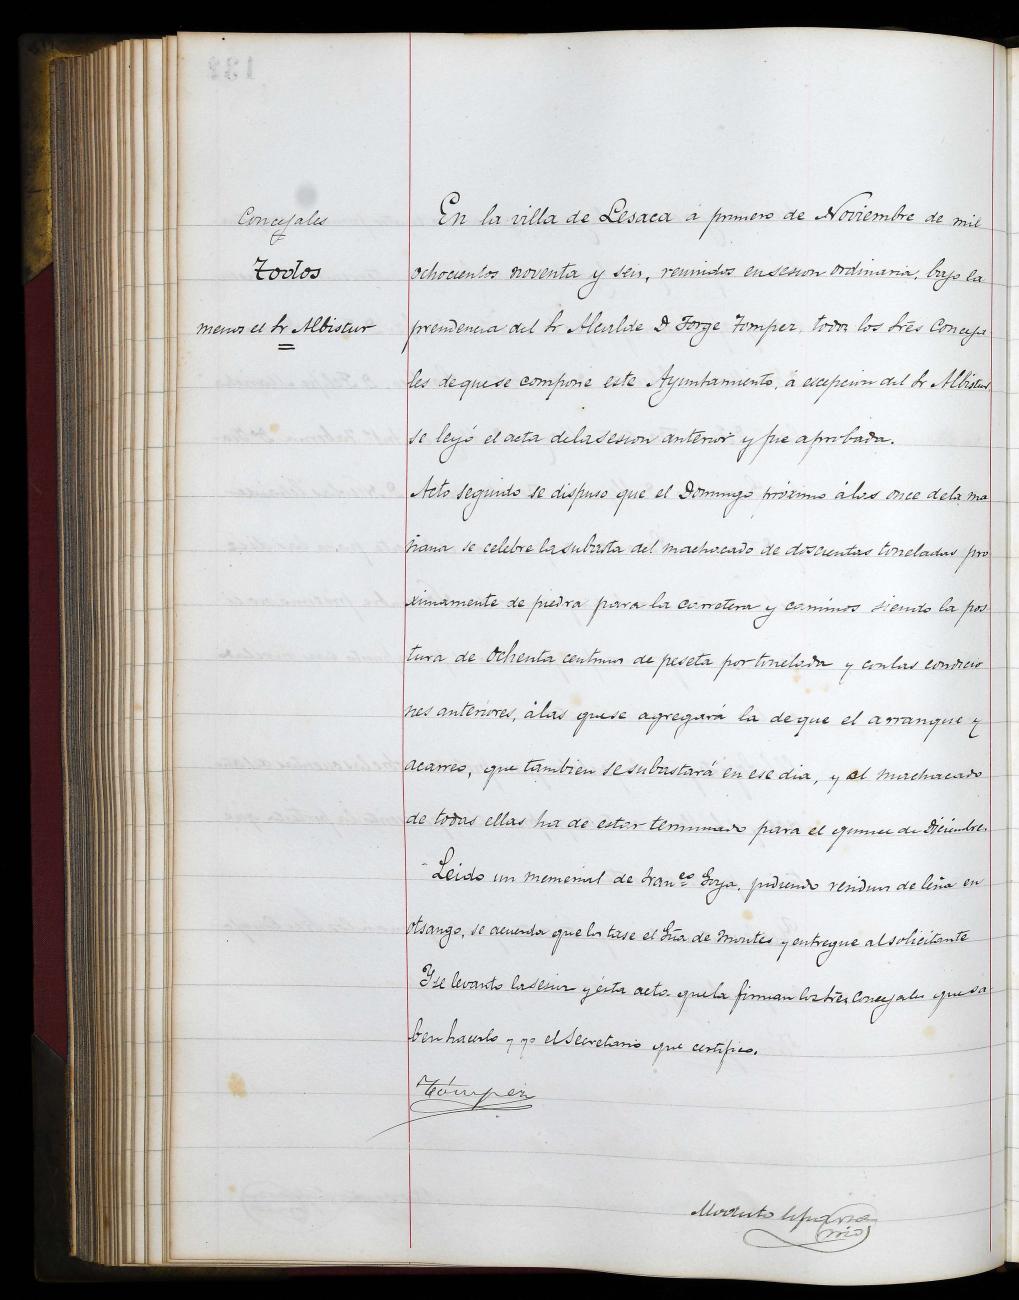 Concejales
Todos
menos el Sr Albistur
En la villa de Lesaca á primero de Noviembre de mil
ochocientos noventa y seis, reunidos en sesion ordinaria, bajo la
presidencia del Sr Alcalde D Jorge Tompez, todos los Sres Conceja
les de que se compone este Ayuntamiento, a escepcion del Sr Albistur,
se leyó el acta de la sesion anterior y fue aprobada.
Acto seguido se dispuso que el Domingo próximo á las once de la ma
ñana se celebre la subasta del machacado de doscientas toneladas pro
ximamente de piedra para la carretera y caminos siendo la pos
tura de Ochenta centimos de peseta por tonelada y con las condicio
nes anteriores, á las que se agregará la de que el arranque y
acarreo, que tambien se subastará en ese dia, y el machacado
de todas ellas ha de estar terminado para el quince de Diciembre.
Leido un memorial de Franco Goya, pidiendo residuos de leña en
Otsango, se acuerda que los tase el Gda de Montes y entregue al solicitante
Y se levantó la sesion y ésta acta que la firman los Sres Concejales que sa
ben hacerlo y yo el Secretario que certifico.
Tómpez
Modesto
Srio